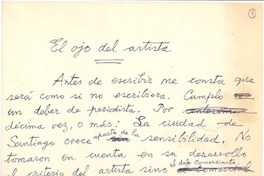 1
El ojo del artista
Antes de escribir me consta que
será como si no escribiera. Cumplo
un deber de periodista. Por
décima vez, o más: La ciudad de
Santiago crece aparte de la sensibilidad. No
tomaron en cuenta en su desarrollo
el criterio del artista sino el del comerciante.